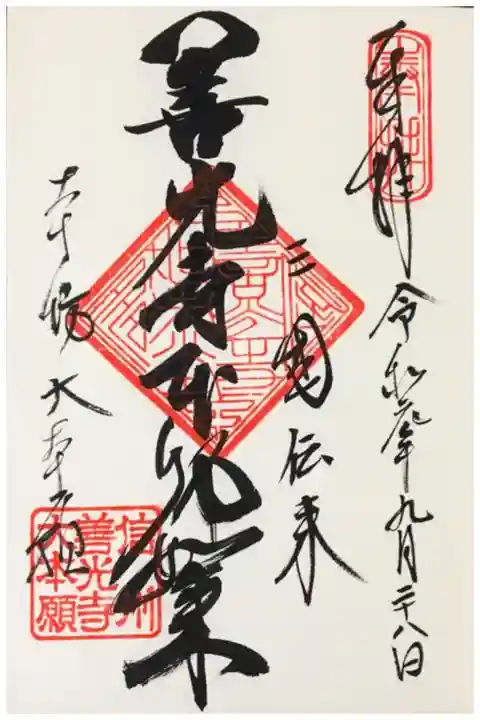 奉拝 令和元年九月二十八日
三国伝来
善光寺本師如来
本坊 大本願
信州
善光寺
大本願